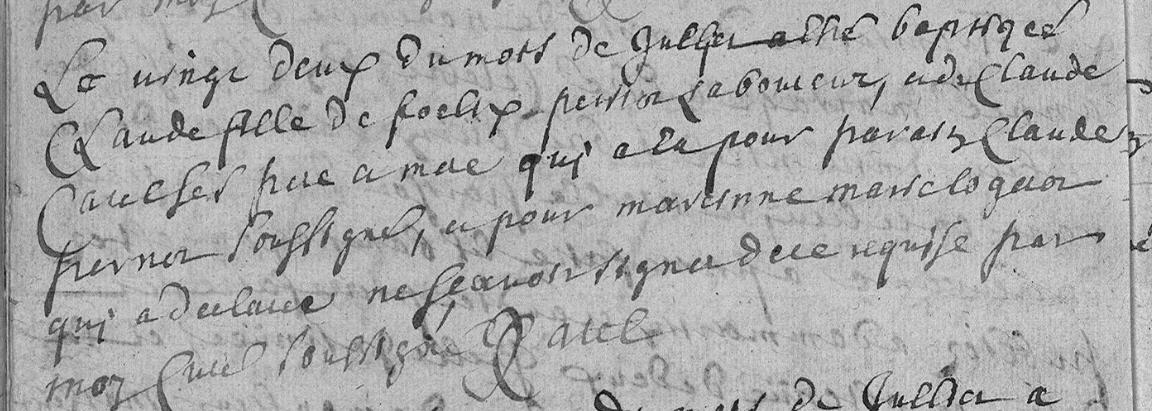 par moy
Le vingt deux du mois de Jullet a esté baptizeé
Claude fille de foelix pernot Laboureur, et de Claude
ses pere et mere qui a eu pour parain Claude
pernot soussigné, et pour marainne marie
qui a declaré ne sçavoir signer de ce requise par
moy Curé soussigné
du mois de Jullet a